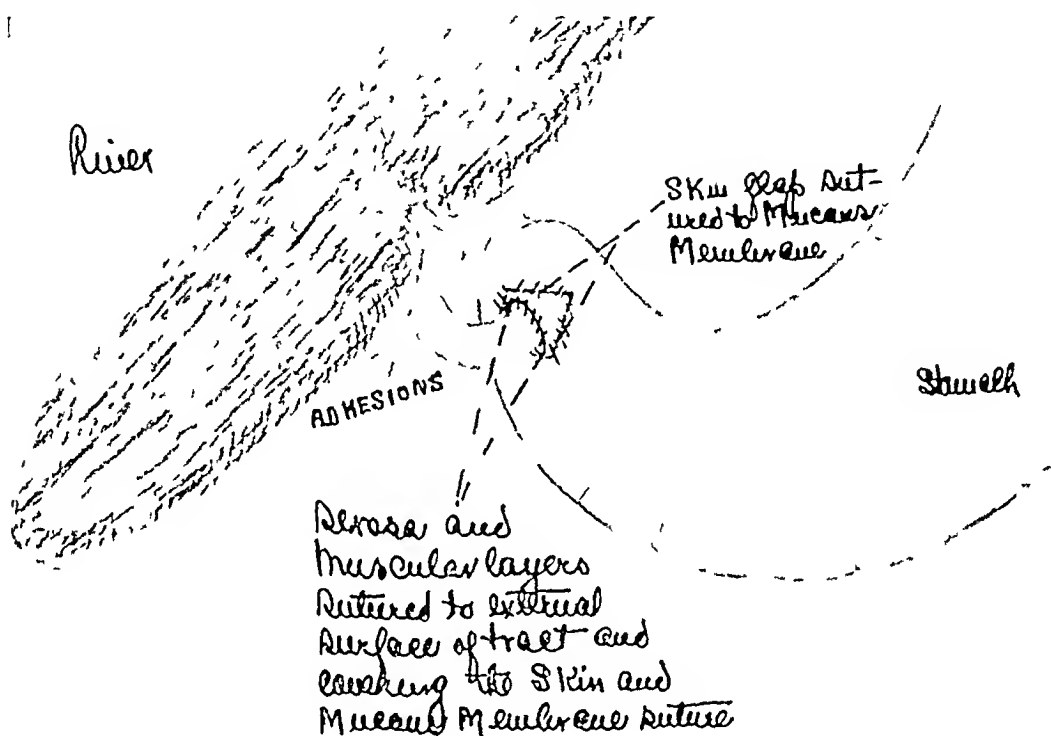 Liver
Skin flap sut-
ured to Mucous
Membrane
Stomach
ADHESIONS
Serosa and
Muscular layers
Sutured to external
Surface of tract and
covering the Skin and
Mucous Membrane suture